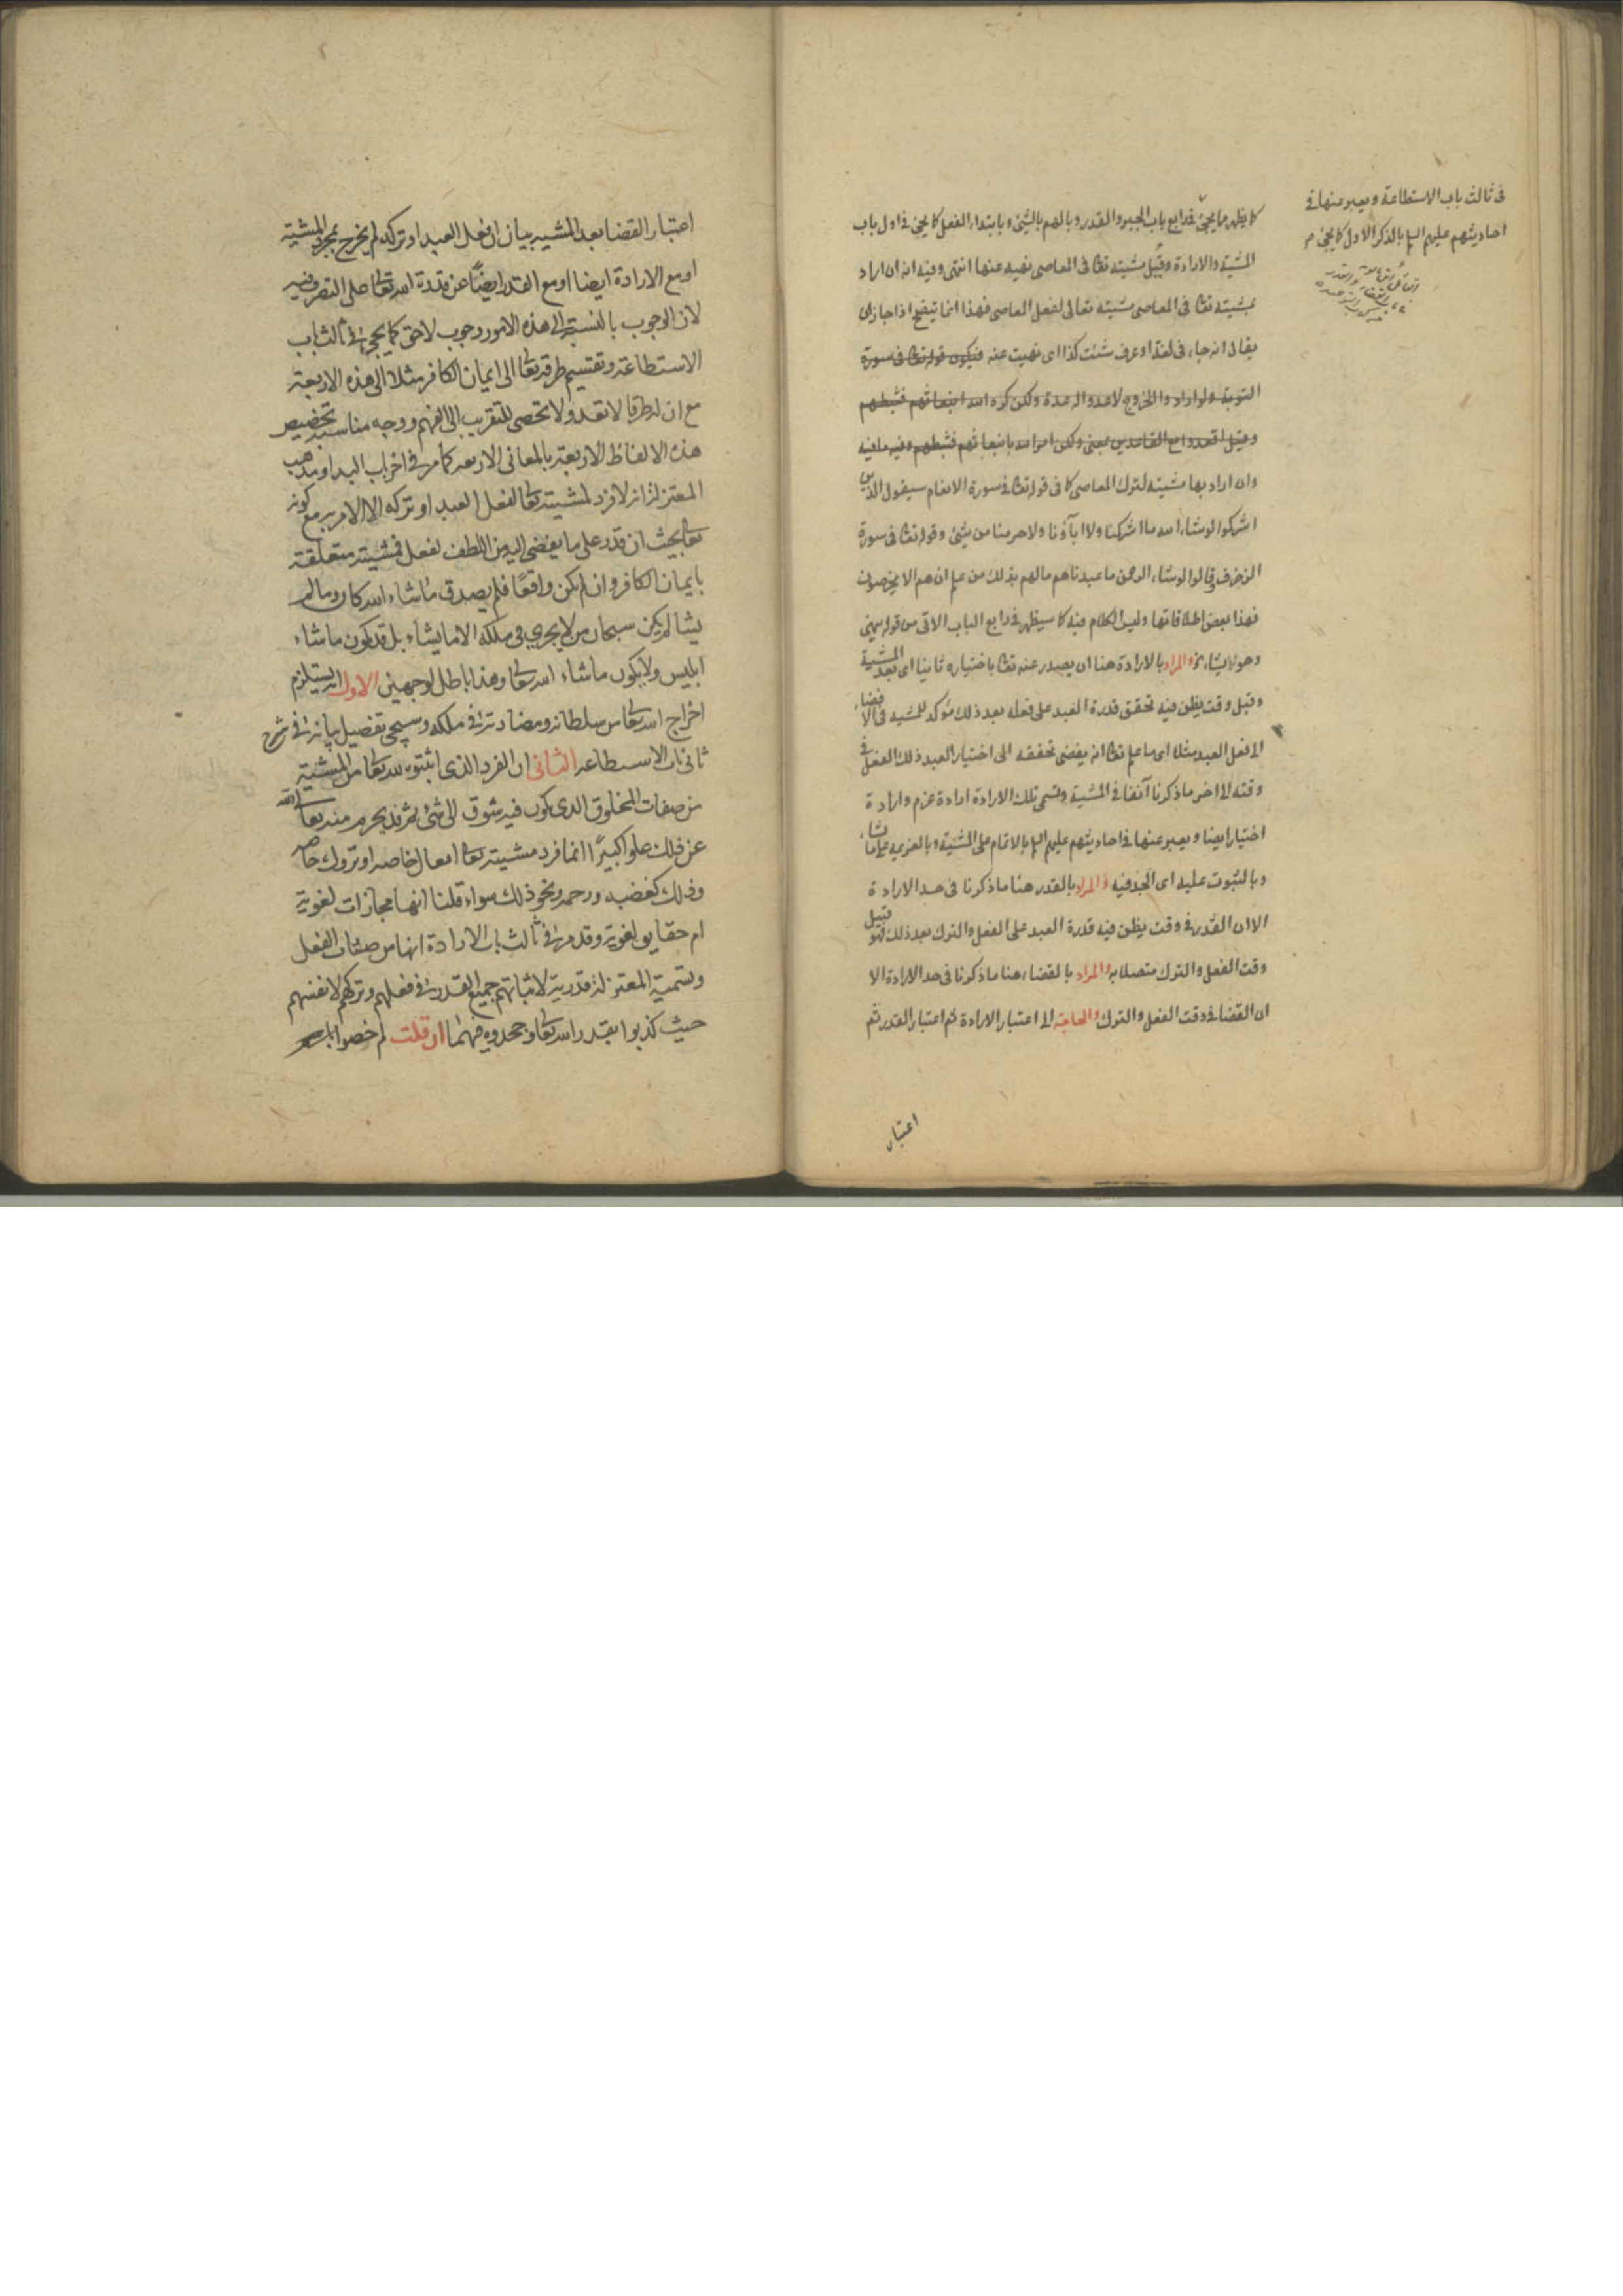 فى ثالث باب الاستطاعة ويعبر عنها فى
احاديثهم عليهم السلم بالذكر الاول كما يجئ
كما يظهر مما يجئ فى رابع باب الجبر والقدر وبالهم بالشئ وبابتداء الفعل كما يجئ فى اول باب
المشية والارادة وقيل مشيته تعا فى المعاصى نهيه عنها انتهى وفيه انه ان اراد
بمشيته تعا فى المعاصى مشيته تعالى لفعل المعاصى فهذا انما يتضح اذا جاز ان
يقال انه جاء فى لغة او عرف شئت كذا اى نهيت عنه فيكون قوله تعا فى سورة
التوبة ولو ارادوا الخروج لاعدوا له عدة ولكن كره الله انبعاثهم فثبطهم
وقيل اقعدوا مع القاعدين بمعنى ولكن امر الله بانبعاثهم فثبطهم وفيه ما فيه
وان اراد بها مشيته لترك المعاصى كما فى قوله تعا فى سورة الانعام سيقول الذين
اشركوا لو شاء الله ما اشركنا ولا اباؤنا ولا حرمنا من شئ وقوله تعا فى سورة
الزخرف وقالوا لو شاء الرحمن ما عبدناهم ما لهم بذلك من علم ان هم الا يخرصون
فهذا بعض اطلاقاتها وليس الكلام فيه كما سيظهر فى رابع الباب الاتى من قوله
وهو لا يشاء والمراد بالارادة هنا ان يصدر عنه تعا باختياره ثانيا اى بعد المشية
وقبل وقت يظن فيه تحقق قدرة العبد على فعله بعد ذلك مؤكد للمشية فى الافضاء
الى فعل العبد مثلا اى ما علم تعا انه يفضى تحققه الى اختيار العبد ذلك الفعل فى
وقته الى اخر ما ذكرنا آنفا فى المشية وتسمى تلك الارادة ارادة عزم وارادة
اختيار ايضا ويعبر عنها فى احاديثهم عليهم السلم بالاتمام على المشية وبالعزيمة على ما شاء
وبالثبوت عليه اى الجد فيه والمراد بالقدر هنا ما ذكرنا فى حد الارادة
الا ان القدر فى وقت يظن فيه قدرة العبد على الفعل والترك بعد ذلك فهو قبيل
وقت الفعل والترك متصلا به والمراد بالقضاء هنا ما ذكرنا فى حد الارادة الا
ان القضا فى وقت الفعل والترك والحاجة الى اعتبار الارادة ثم اعتبار القدر ثم
اعتبار
اعتبار القضا بعد المشيه بيان ان فعل العبد او تركه لم يخرج بمجرد المشية
او مع الارادة ايضا او مع القدر ايضا عن قدرة الله تعا على التصرف فيه
لان الوجوب بالنسبة الى هذه الامور وجوب لاحق كما يجئ فى ثالث باب
الاستطاعة وتقسيم طرقه تعا الى ايمان الكافر مثلا الى هذه الاربعة
مع ان له طرقا لا تعد ولا تحصى للتقريب الى الفهم ووجه مناسبة تخصيص
هذه الالفاظ الاربعة بالمعانى الاربعه كما مر فى اخر باب البدا ومذهب
المعتزلة انه لا فرد لمشيته تعا لفعل العبد او تركه الا الامر به مع كونه
تعا بحيث ان قدر على ما يفضى اليه من اللطف لفعل فمشيته متعلقة
بايمان الكافر وان لم يكن واقعا فلم يصدق ما شاء الله كان وما لم
يشا لم يكن سبحان من لا يجرى فى ملكه الا ما يشاء بل قد يكون ما شاء
ابليس ولا يكون ما شاء الله تعا وهذا باطل لوجهين الاول انه يستلزم
اخراج الله تعا من سلطانه ومضادته فى ملكه وسيجئ تفصيل بيانه فى شرح
ثانى باب الاستطاعه الثانى ان الفرد الذى اثبتوه لله تعا من المشية
من صفات المخلوق الذى يكون فيه شوق الى شئ ثم قد يحرم منه تعالى الله
عن ذلك علوا كبيرا انما فرد مشيته تعا افعال خاصه او تروك خاصه
وذلك كغضبه ورحمه ونحو ذلك سواء قلنا انها مجازات لغوية
ام حقايق لغوية وقد مر فى ثالث باب الارادة انها من صفات الفعل
وتسمية المعتزلة قدرية لاثباتهم جميع القدر فى فعلهم وتركهم لانفسهم
حيث كذبوا بقدر الله تعا وجحدوه فيهما ان قلت لم خصوا